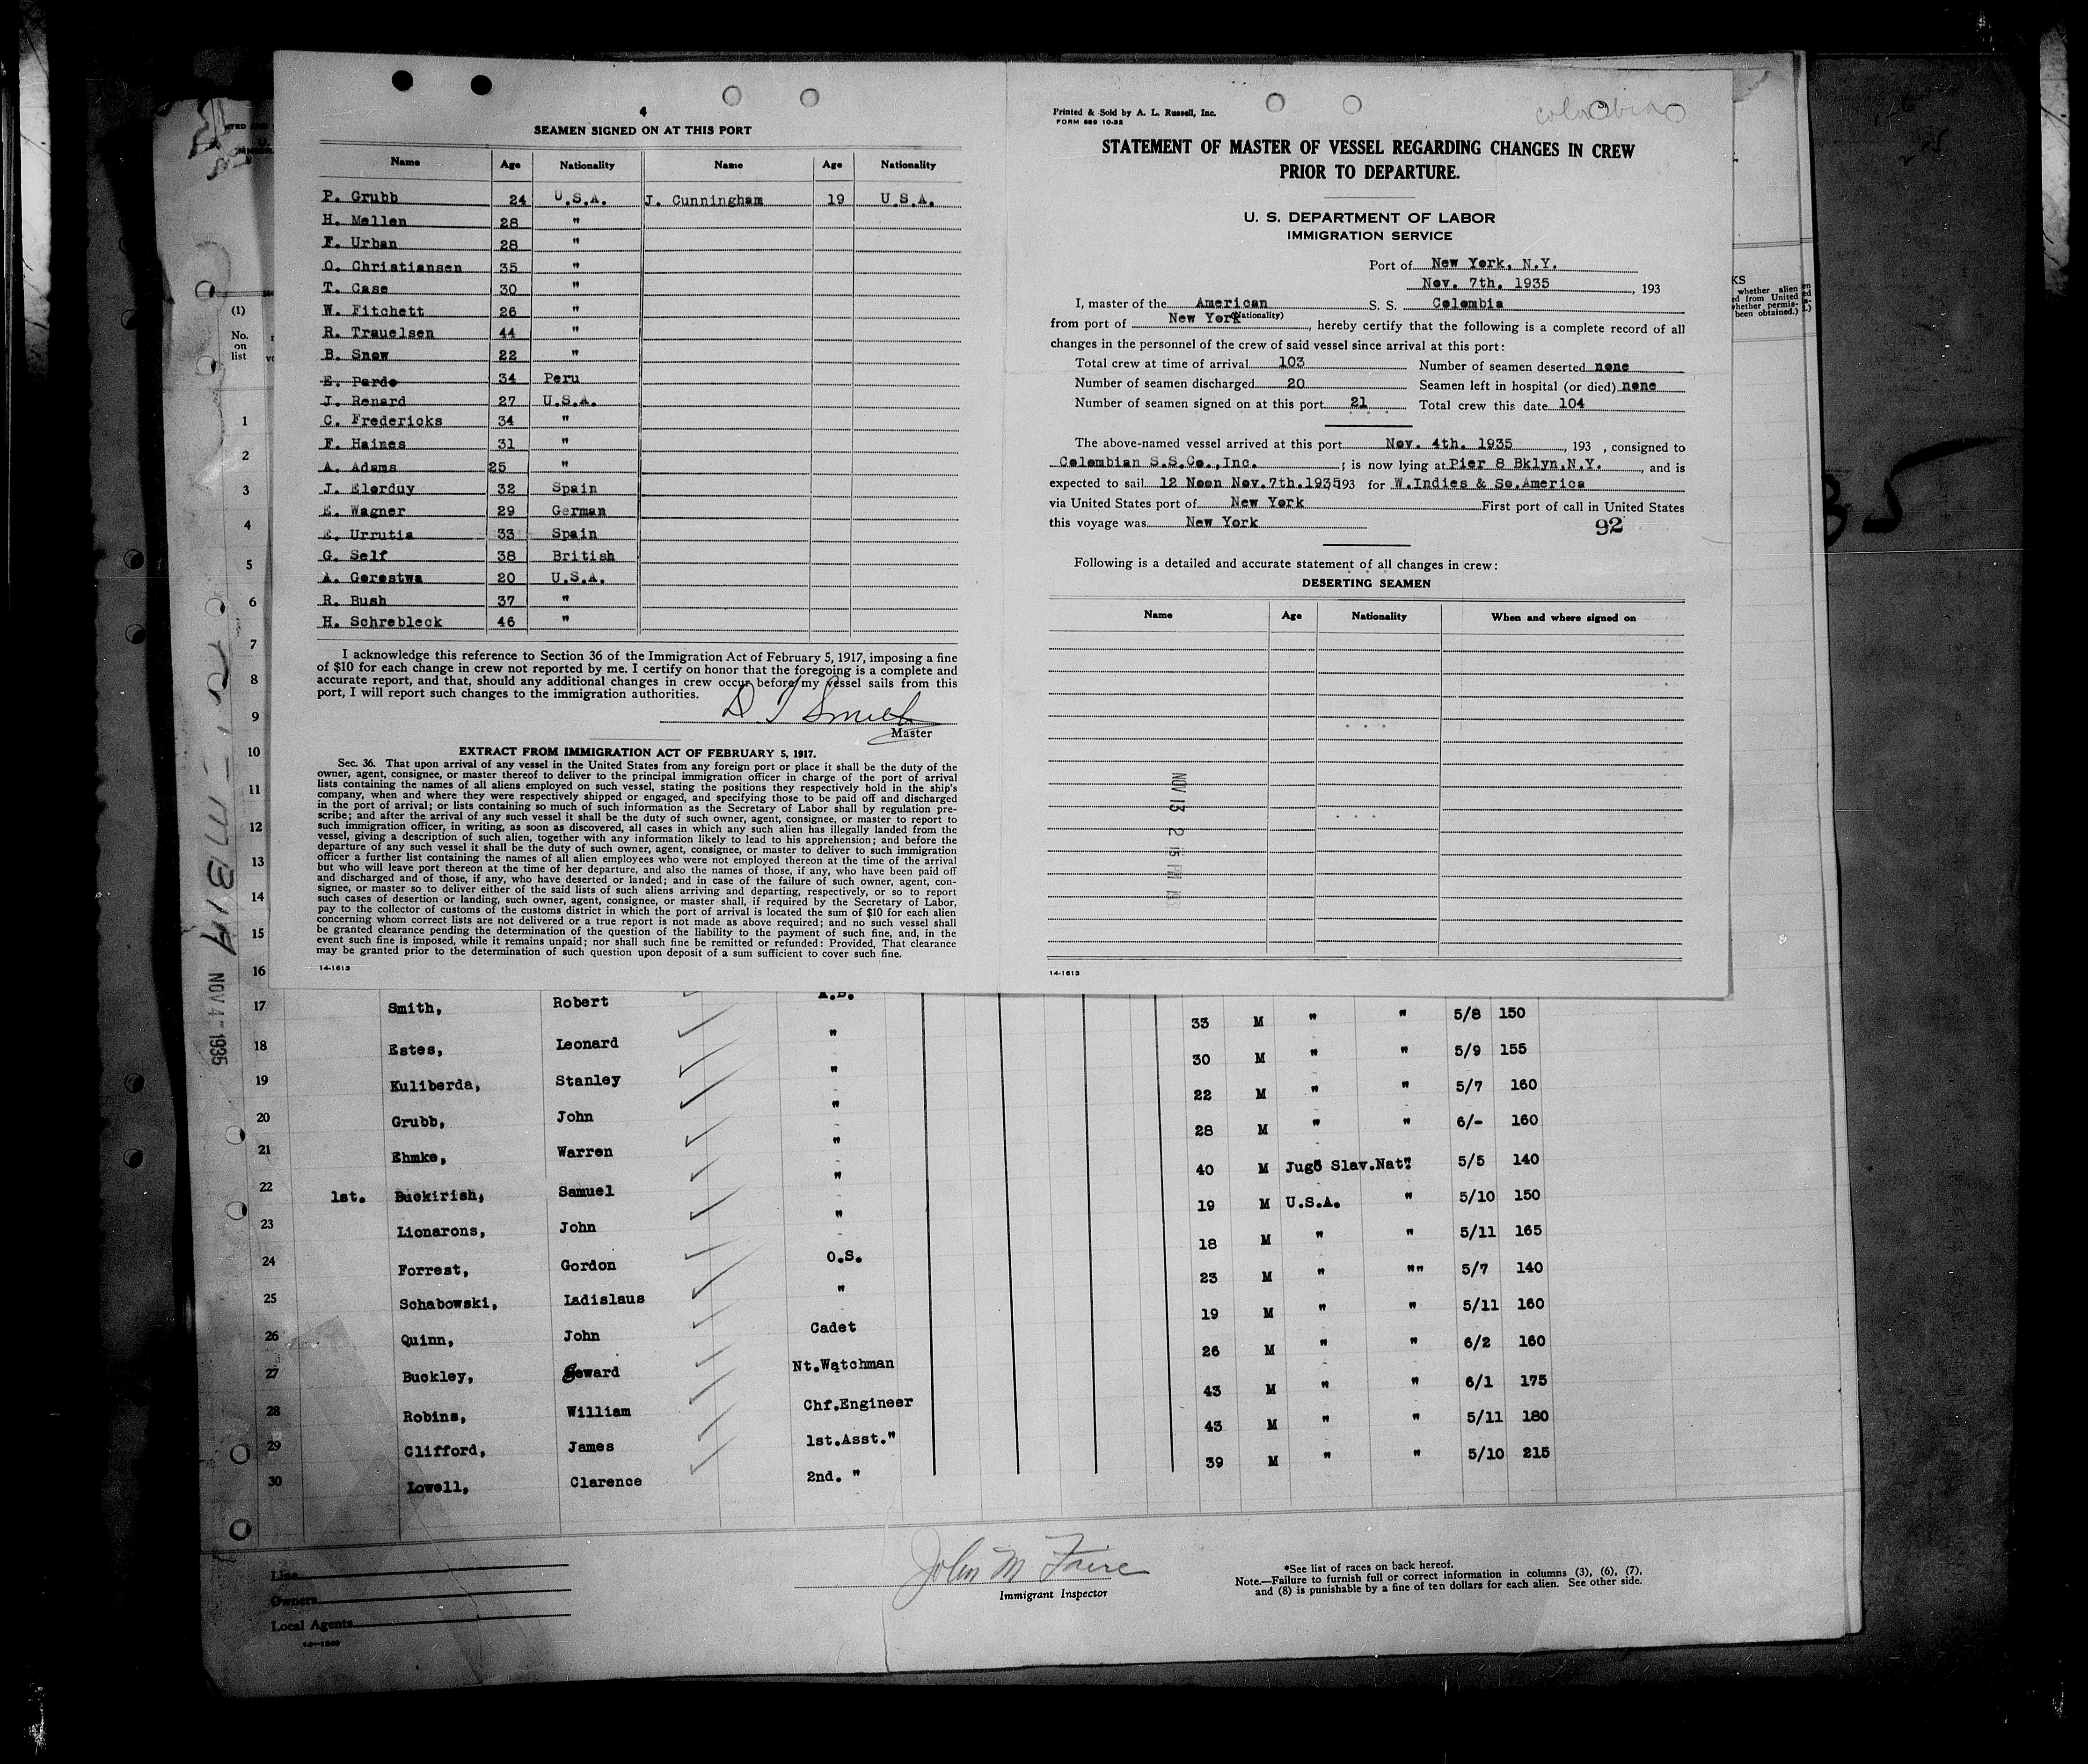 4
SEAMEN SIGNED ON AT THIS PORT
Name Age Nationality Name Age Nationality
P. Grubb 24 U.S.A. J. Cunningham 19 U.S.A.
H. Mellen 28 "
F. Urban 28 "
O. Christiansen 35 "
T. Case 30 "
W. Fitchett 26 "
R. Trauelsen 44 "
B. Snow 22 "
E. Pardo 34 Peru
J. Renard 27 U.S.A.
C. Fredericks 34 "
F. Haines 31 "
A. Adams 25 "
J. Elorduy 32 Spain
E. Wagner 29 German
E. Urrutia 33 Spain
G. Self 38 British
A. Gerestwa 20 U.S.A.
R. Bush 37 "
H. Schrebleck 46 "
I acknowledge this reference to Section 36 of the Immigration Act of February 5, 1917, imposing a fine
of $10 for each change in crew not reported by me. I certify on honor that the foregoing is a complete and
accurate report, and that, should any additional changes in crew occur before my vessel sails from this
port, I will report such changes to the immigration authorities.
Master
EXTRACT FROM IMMIGRATION ACT OF FEBRUARY 5, 1917.
Sec. 36. That upon arrival of any vessel in the United States from any foreign port or place it shall be the duty of the
owner, agent, consignee, or master thereof to deliver to the principal immigration officer in charge of the port of arrival
lists containing the names of all aliens employed on such vessel, stating the positions they respectively hold in the ship's
company, when and where they were respectively shipped or engaged, and specifying those to be paid off and discharged
in the port of arrival; or lists containing so much of such information as the Secretary of Labor shall by regulation pre-
scribe; and after the arrival of any such vessel it shall be the duty of such owner, agent, consignee, or master to report to
such immigration officer, in writing, as soon as discovered, all cases in which any such alien has illegally landed from the
vessel, giving a description of such alien, together with any information likely to lead to his apprehension; and before the
departure of any such vessel it shall be the duty of such owner, agent, consignee, or master to deliver to such immigration
officer a further list containing the names of all alien employees who were not employed thereon at the time of the arrival
but who will leave port thereon at the time of her departure, and also the names of those, if any, who have been paid off
and discharged and of those, if any, who have deserted or landed; and in case of the failure of such owner, agent, con-
signee, or master so to deliver either of the said lists of such aliens arriving and departing, respectively, or so to report
such cases of desertion or landing, such owner, agent, consignee, or master shall, if required by the Secretary of Labor,
pay to the collector of customs of the customs district in which the port of arrival is located the sum of $10 for each alien
concerning whom correct lists are not delivered or a true report is not made as above required; and no such vessel shall
be granted clearance pending the determination of the question of the liability to the payment of such fine, and, in the
event such fine is imposed, while it remains unpaid; nor shall such fine be remitted or refunded: Provided, That clearance
may be granted prior to the determination of such question upon deposit of a sum sufficient to cover such fine.
14-1613
Printed & Sold by A. L. Russell, Inc.
FORM 689 10-32
STATEMENT OF MASTER OF VESSEL REGARDING CHANGES IN CREW
PRIOR TO DEPARTURE.
U. S. DEPARTMENT OF LABOR
IMMIGRATION SERVICE
Port of New York, N.Y.
Nov. 7th. 1935, 193
I, master of the American S. S. Colombia
(Nationality)
from port of New York, hereby certify that the following is a complete record of all
changes in the personnel of the crew of said vessel since arrival at this port:
Total crew at time of arrival 103 Number of seamen deserted none
Number of seamen discharged 20 Seamen left in hospital (or died) none
Number of seamen signed on at this port 21 Total crew this date 104
The above-named vessel arrived at this port Nov. 4th. 1935, 193 , consigned to
Colombian S.S.Co.,Inc. ; is now lying at Pier 8 Bklyn.N.Y., and is
expected to sail 12 Noon Nov.7th.1935 193 for W.Indies & So.America
via United States port of New York First port of call in United States
this voyage was New York
92
Following is a detailed and accurate statement of all changes in crew:
DESERTING SEAMEN
Name Age Nationality When and where signed on
NOV 13 2 15 PM
14-1613
(1)
No.
on
list
1
2
3
4
5
6
7
8
9
10
11
12
13
14
15
16
NOV 4 1935
17 Smith, Robert A.B. 33 M " " 5/8 150
18 Estes, Leonard " 30 M " " 5/9 155
19 Kuliberda, Stanley " 22 M " " 5/7 160
20 Grubb, John " 28 M " " 6/- 160
21 Ehmke, Warren " 40 M Jugo Slav.Nat. 5/5 140
22 1st. Buckirish, Samuel " 19 M U.S.A. " 5/10 150
23 Lionarons, John " 18 M " " 5/11 165
24 Forrest, Gordon O.S. 23 M " "" 5/7 140
25 Schabowski, Ladislaus " 19 M " " 5/11 160
26 Quinn, John Cadet 26 M " " 6/2 160
27 Buckley, Seward Nt.Watchman 43 M " " 6/1 175
28 Robins, William Chf.Engineer 43 M " " 5/11 180
29 Clifford, James 1st.Asst." 39 M " " 5/10 215
30 Lowell, Clarence 2nd. "
Line
Owners
Local Agents
14-1240
Immigrant Inspector
*See list of races on back hereof.
Note.—Failure to furnish full or correct information in columns (3), (6), (7),
and (8) is punishable by a fine of ten dollars for each alien. See other side.